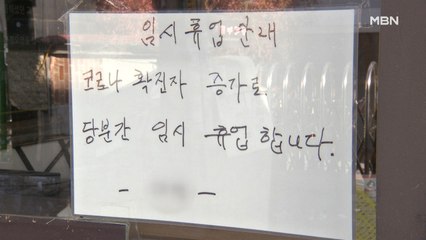 MBN
임시휴업안내
코로나 확진자 증가로.
당분간 임시 휴업 합니다.